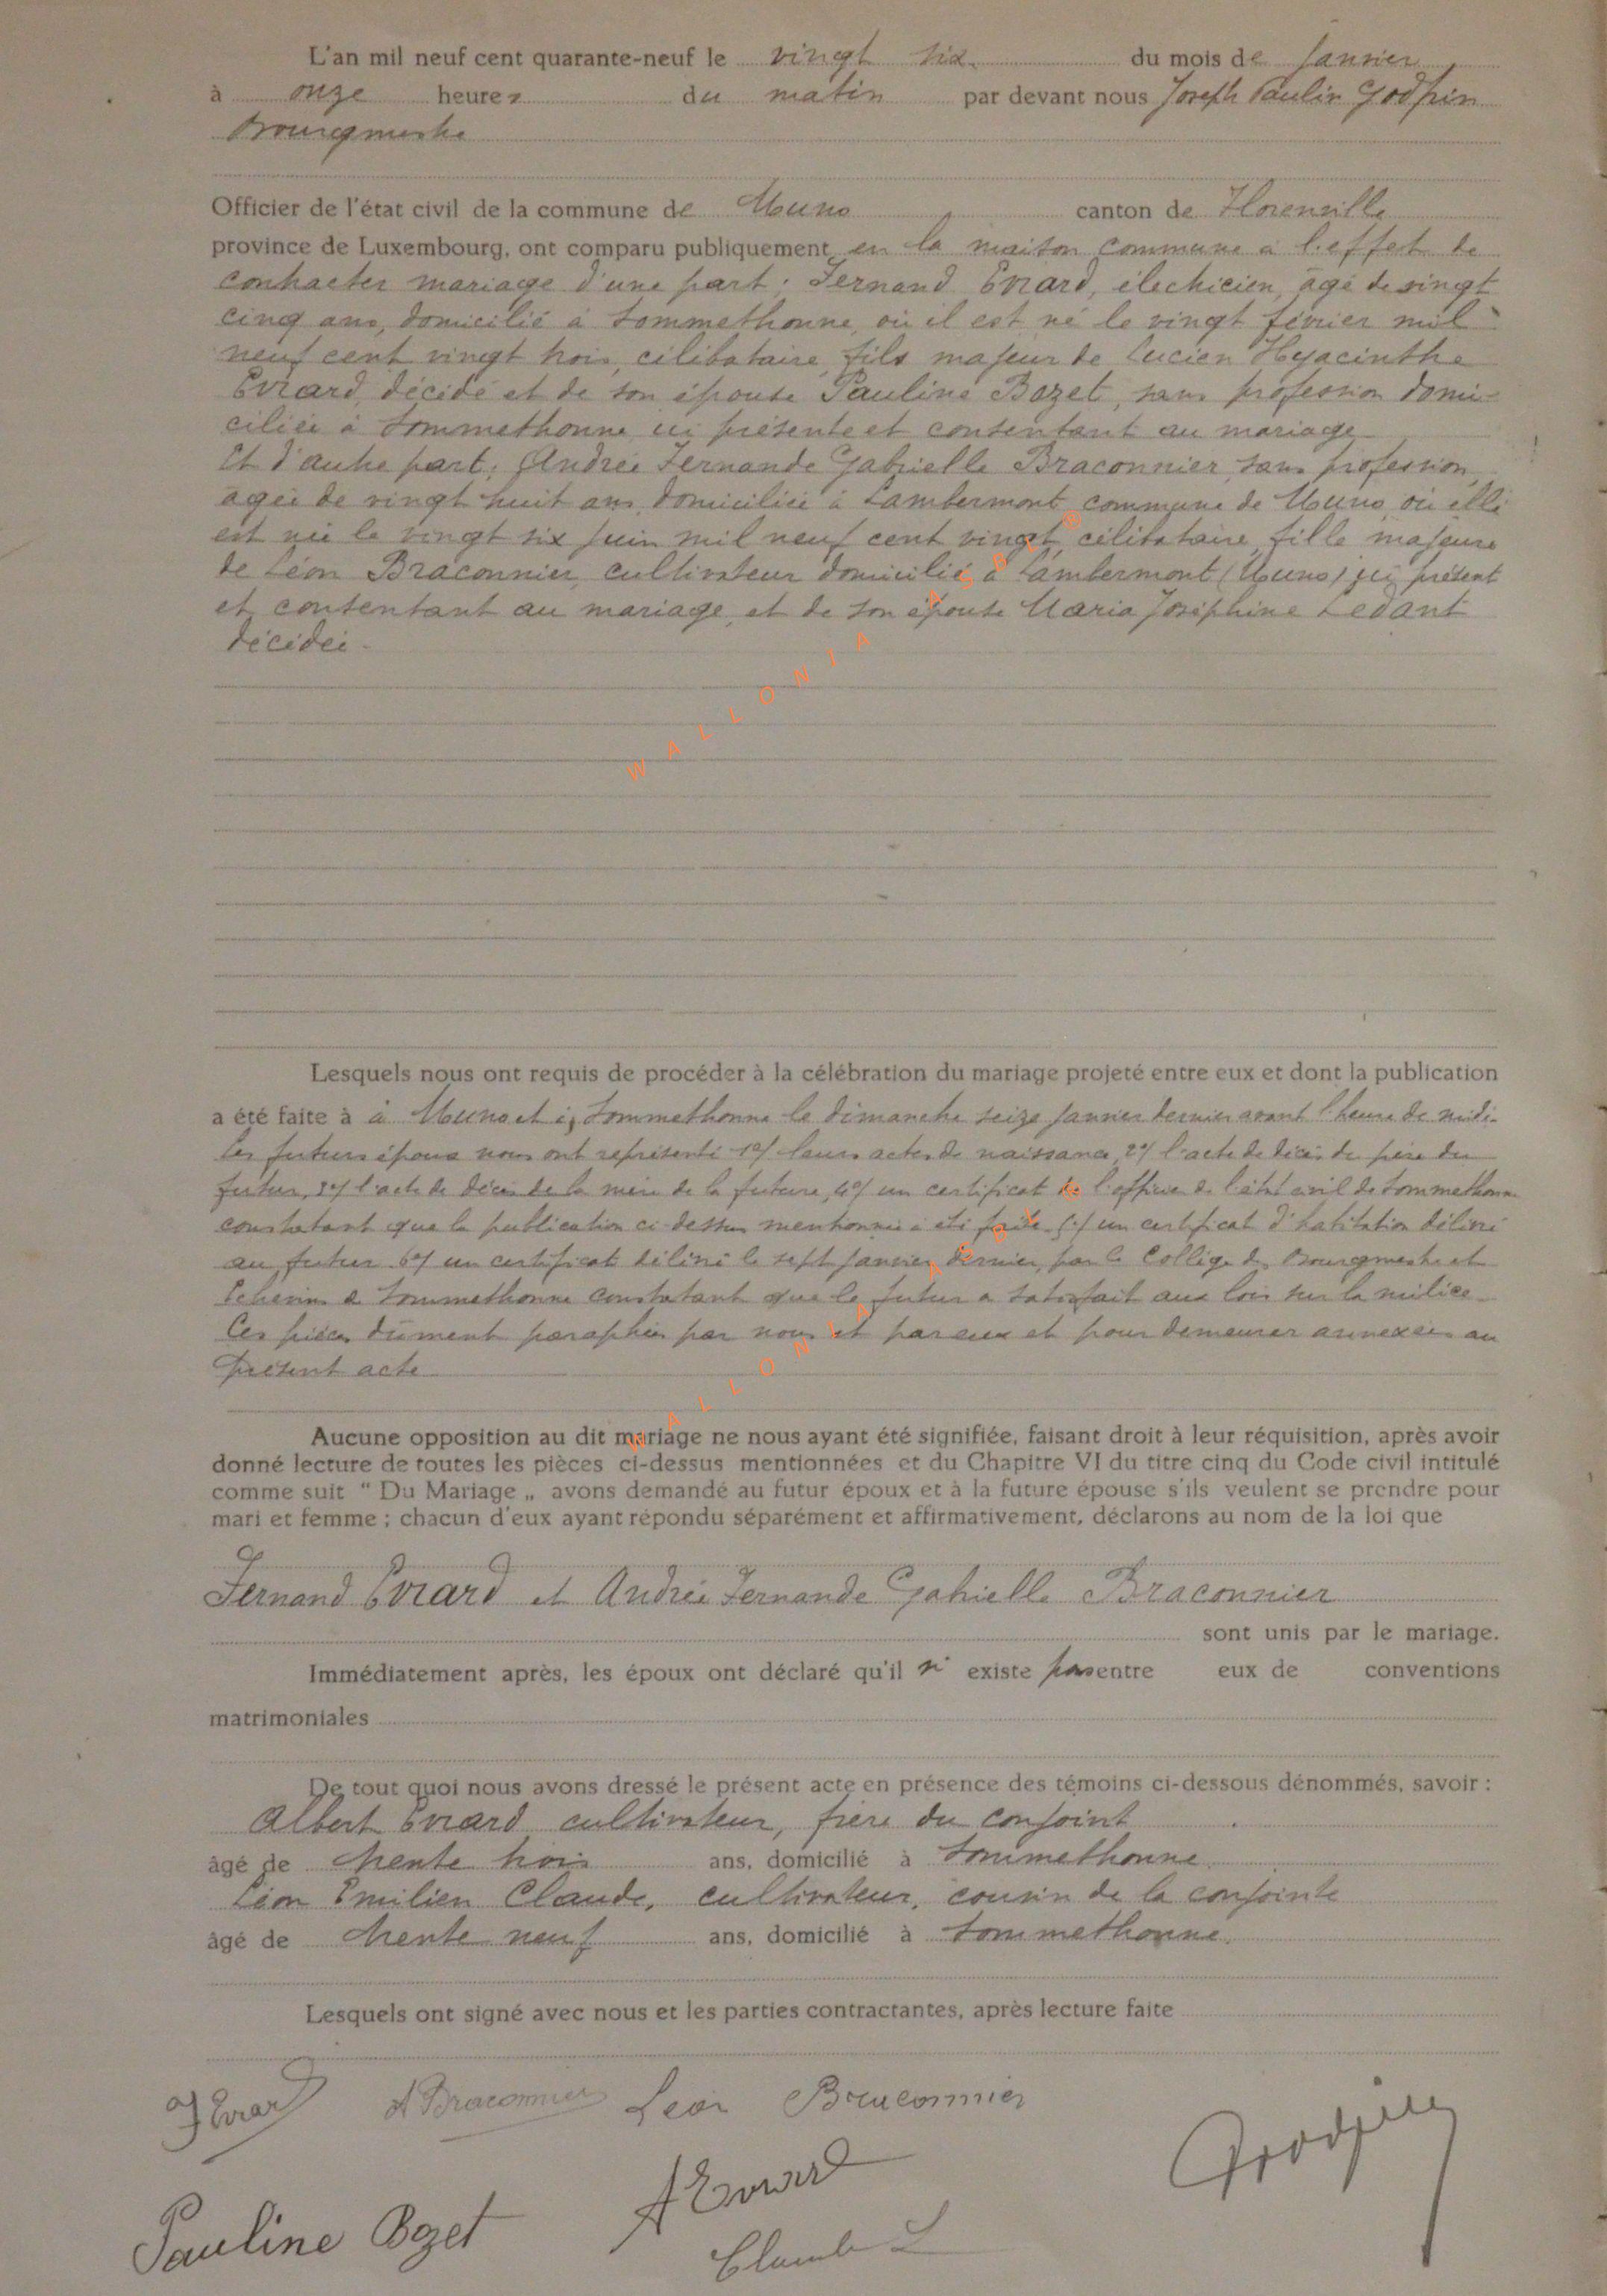 L'an mil neuf cent quarante-neuf le vingt six du mois de Janvier
à onze heures du matin par devant nous Joseph Paulin Godfrin
Bourgmestre
Officier de l'état civil de la commune de Muno canton de Florenville
province de Luxembourg, ont comparu publiquement en la maison commune à l'effet de
contracter mariage d'une part : Fernand Evrard, électricien, âgé de vingt
cinq ans, domicilié à Sommethonne, où il est né le vingt février mil
neuf cent vingt trois, célibataire, fils majeur de Lucien Hyacinthe
Evrard décédé et de son épouse Pauline Bozet, sans profession domi-
ciliée à Sommethonne ici présente et consentant au mariage
Et d'autre part, Andrée Fernande Gabrielle Braconnier, sans profession,
âgée de vingt huit ans domiciliée à Lambermont commune de Muno où elle
est née le vingt six juin mil neuf cent vingt, célibataire, fille majeure
de Léon Braconnier, cultivateur domicilié à Lambermont (Muno) ici présent
et consentant au mariage, et de son épouse Maria Joséphine Ledant
décédée.
WALLONIA ASBL
Lesquels nous ont requis de procéder à la célébration du mariage projeté entre eux et dont la publication
a été faite à à Muno et à Sommethonne le dimanche seize janvier dernier avant l'heure de midi.
les futurs époux nous ont représenté 1°/ leurs actes de naissance, 2°/ l'acte de décès du père du
futur, 3°/ l'acte de décès de la mère de la future, 4°/ un certificat de l'officier de l'état civil de Sommethonne
constatant que la publication ci-dessus mentionnée a été faite 5°/ un certificat d'habitation délivré
au futur 6°/ un certificat délivré le sept janvier dernier, par le Collège des Bourgmestre et
Echevins de Sommethonne constatant que le futur a satisfait aux lois sur la milice.
Ces pièces dûment paraphées par nous et par eux et pour demeurer annexées au
présent acte
WALLONIA ASBL
Aucune opposition au dit mariage ne nous ayant été signifiée, faisant droit à leur réquisition, après avoir
donné lecture de toutes les pièces ci-dessus mentionnées et du Chapitre VI du titre cinq du Code civil intitulé
comme suit " Du Mariage „ avons demandé au futur époux et à la future épouse s'ils veulent se prendre pour
mari et femme ; chacun d'eux ayant répondu séparément et affirmativement, déclarons au nom de la loi que
Fernand Evrard et Andrée Fernande Gabrielle Braconnier
sont unis par le mariage.
Immédiatement après, les époux ont déclaré qu'il n' existe pas entre eux de conventions
matrimoniales
De tout quoi nous avons dressé le présent acte en présence des témoins ci-dessous dénommés, savoir :
Albert Evrard cultivateur, frère du conjoint
âgé de trente trois ans, domicilié à Sommethonne
Léon Emilien Claude, cultivateur, cousin de la conjointe
âgé de trente neuf ans, domicilié à Sommethonne
Lesquels ont signé avec nous et les parties contractantes, après lecture faite
F Evrard A Braconnier Leon Braconnier
Godfrin
A Evrard
Pauline Bozet
Claude L